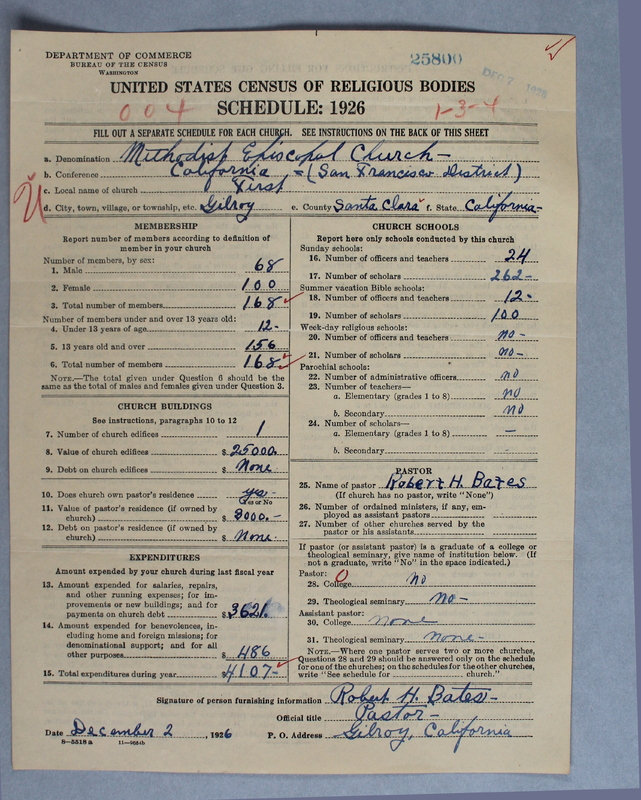 DEPARTMENT OF COMMERCE
BUREAU OF THE CENSUS
WASHINGTON
25800
DEC 7 1926
UNITED STATES CENSUS OF RELIGIOUS BODIES
004
SCHEDULE: 1926
1-3-4
FILL OUT A SEPARATE SCHEDULE FOR EACH CHURCH. SEE INSTRUCTIONS ON THE BACK OF THIS SHEET
a. Denomination Methodist Episcopal Church-
b. Conference California - (San Francisco District)
c. Local name of church First
d. City, town, village, or township, etc. Gilroy e. County Santa Clara f. State California-
MEMBERSHIP
Report number of members according to definition of
member in your church
Number of members, by sex:
1. Male 68
2. Female 100
3. Total number of members 168
Number of members under and over 13 years old:
4. Under 13 years of age 12-
5. 13 years old and over 156
6. Total number of members 168
NOTE.—The total given under Question 6 should be
the same as the total of males and females given under Question 3.
CHURCH BUILDINGS
See instructions, paragraphs 10 to 12
7. Number of church edifices 1
8. Value of church edifices $ 25000.
9. Debt on church edifices $ None
10. Does church own pastor's residence yes-
Yes or No
11. Value of pastor's residence (if owned by
church) $ 3000.-
12. Debt on pastor's residence (if owned by
church) $ None-
EXPENDITURES
Amount expended by your church during last fiscal year
13. Amount expended for salaries, repairs,
and other running expenses; for im-
provements or new buildings; and for
payments on church debt $ 3621.
14. Amount expended for benevolences, in-
cluding home and foreign missions; for
denominational support; and for all
other purposes $ 486
15. Total expenditures during year $ 4107-
CHURCH SCHOOLS
Report here only schools conducted by this church
Sunday schools:
16. Number of officers and teachers 24
17. Number of scholars 262-
Summer vacation Bible schools:
18. Number of officers and teachers 12-
19. Number of scholars 100
Week-day religious schools:
20. Number of officers and teachers no-
21. Number of scholars no-
Parochial schools:
22. Number of administrative officers no
23. Number of teachers—
a. Elementary (grades 1 to 8) no
b. Secondary no
24. Number of scholars—
a. Elementary (grades 1 to 8) —
b. Secondary -
PASTOR
25. Name of pastor Robert H. Bates
(If church has no pastor, write "None")
26. Number of ordained ministers, if any, em-
ployed as assistant pastors
27. Number of other churches served by the
pastor or his assistants
If pastor (or assistant pastor) is a graduate of a college or
theological seminary, give name of institution below. (If
not a graduate, write "No" in the space indicated.)
Pastor: 0
28. College no
29. Theological seminary no-
Assistant pastor:
30. College none
31. Theological seminary none-
NOTE.—Where one pastor serves two or more churches,
Questions 28 and 29 should be answered only on the schedule
for one of the churches; on the schedules for the other churches,
write "See schedule for church."
Signature of person furnishing information Robert H. Bates-
Official title Pastor-
Date December 2, 1926 P. O. Address Gilroy, California
8—5518a 11—9664b